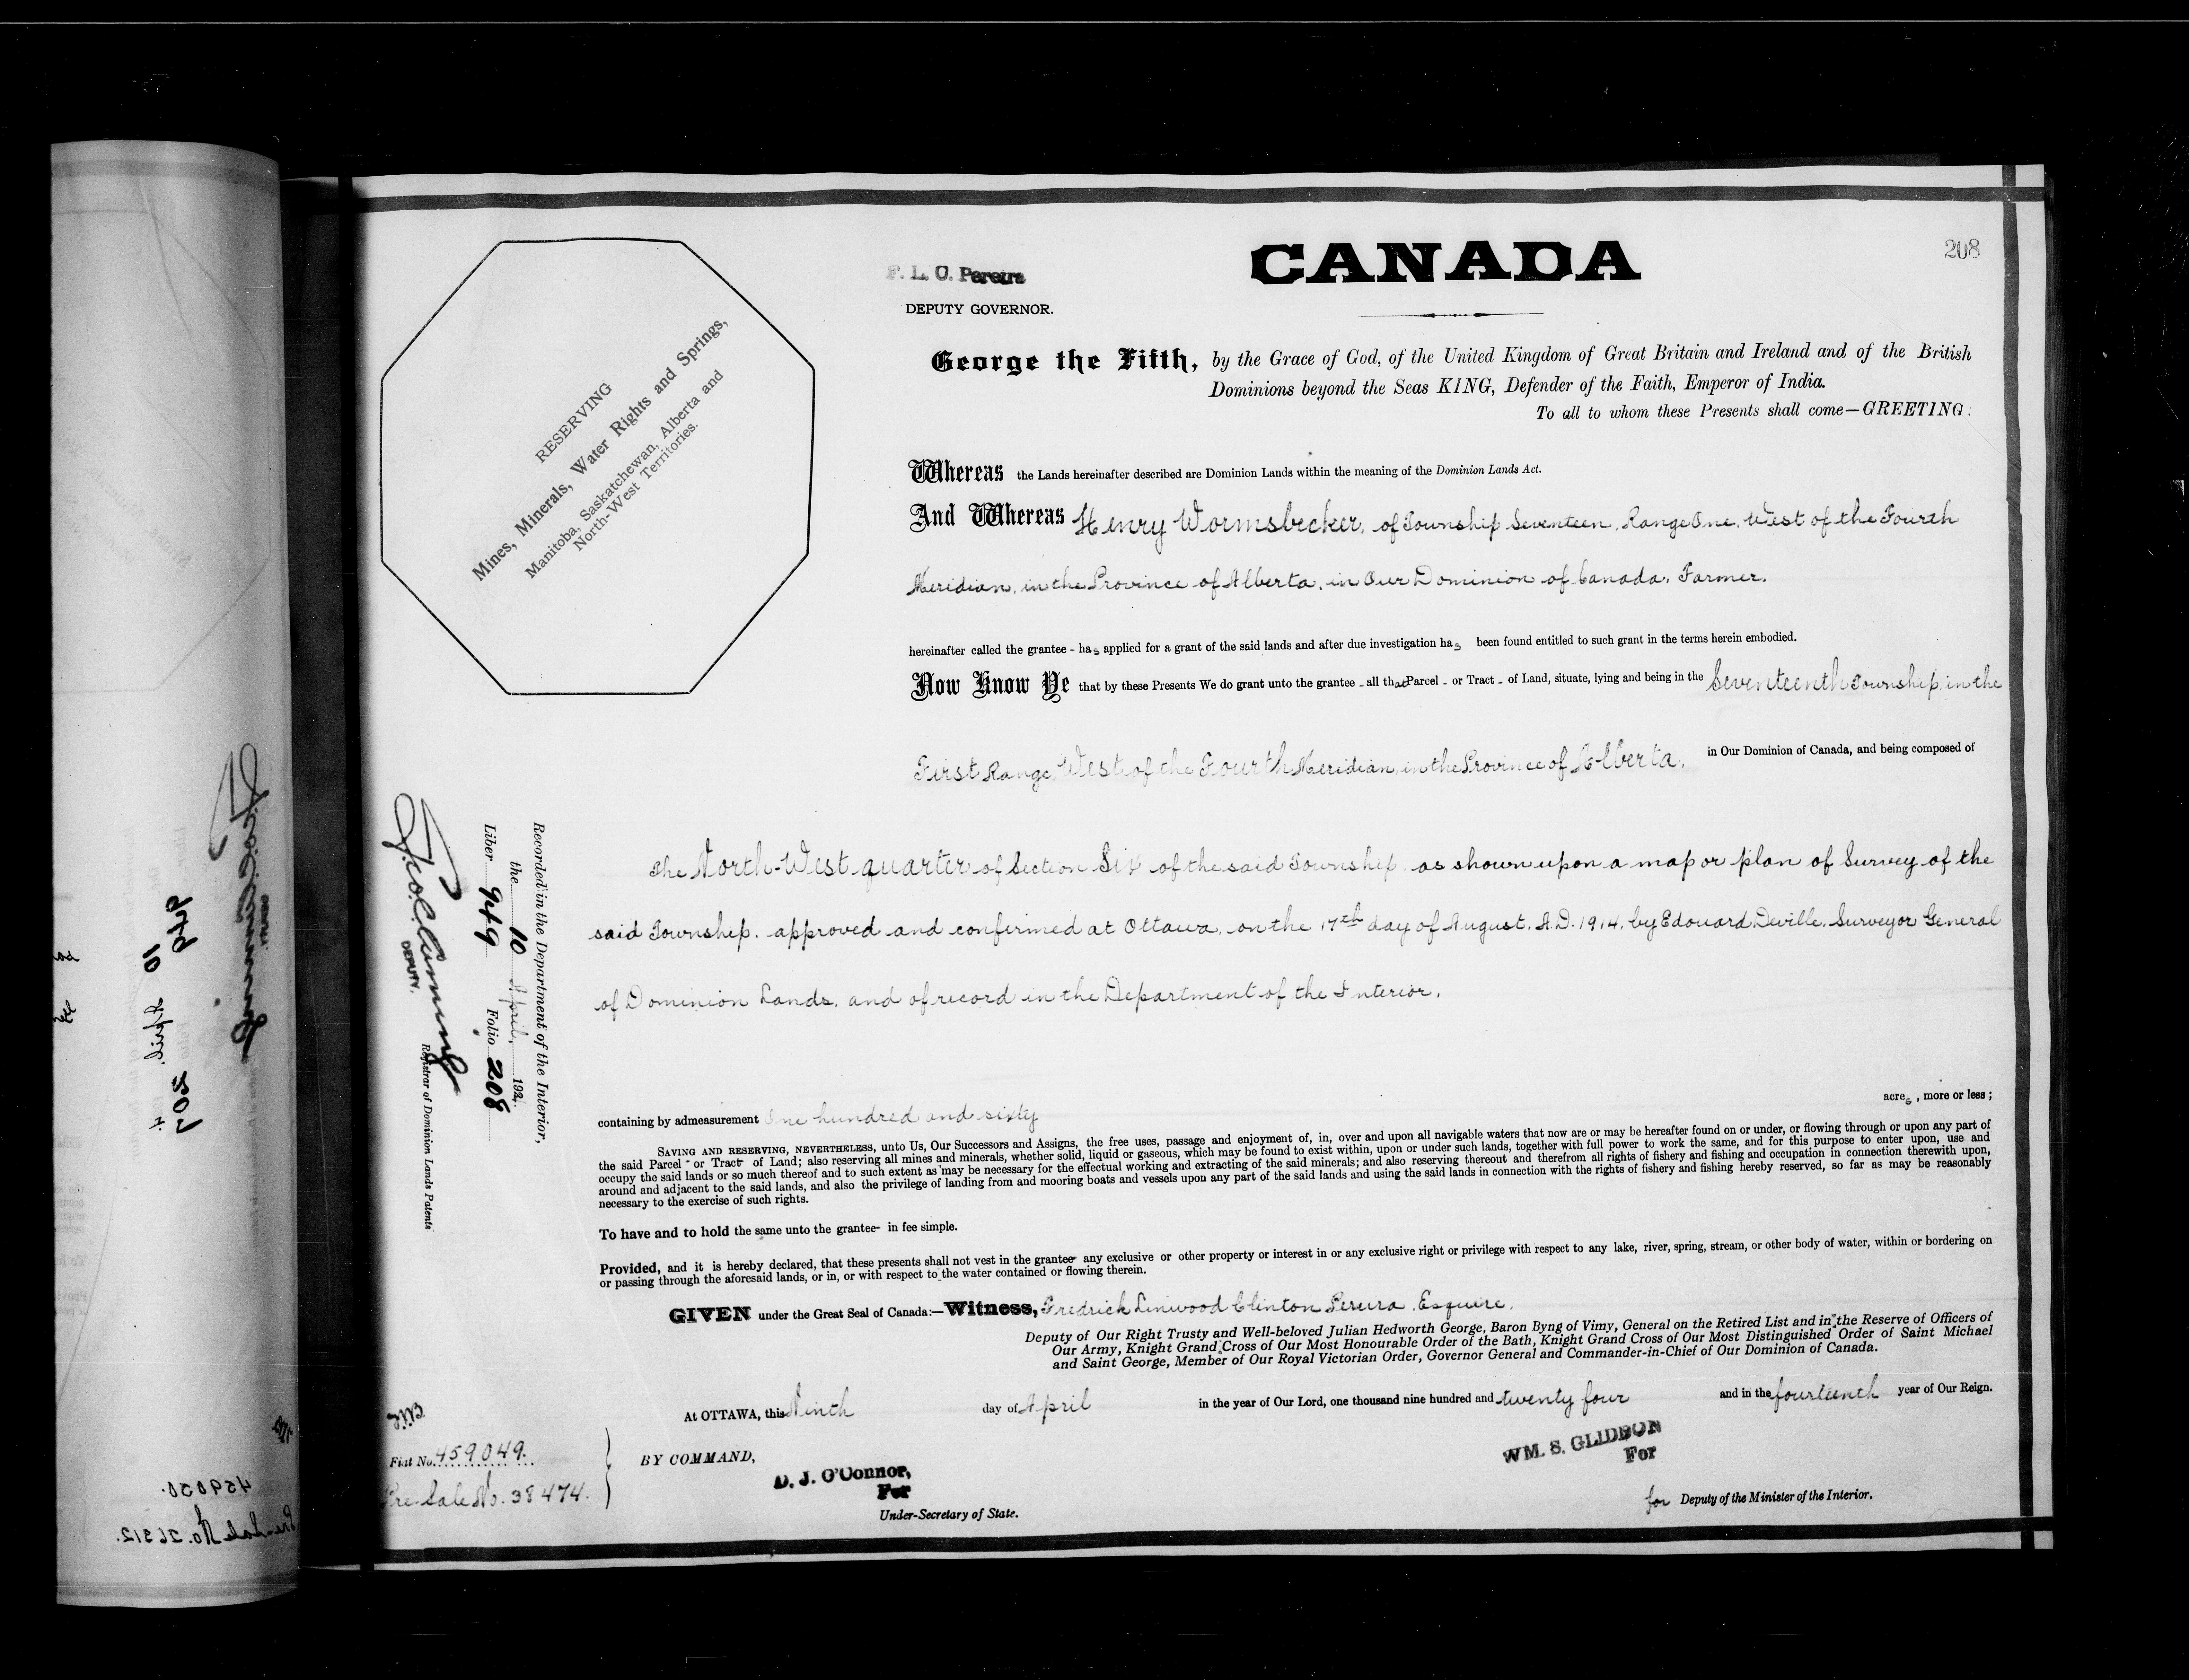 208
CANADA
F. L. C. Pereira
DEPUTY GOVERNOR.
George the Fifth, by the Grace of God, of the United Kingdom of Great Britain and Ireland and of the British
Dominions beyond the Seas KING, Defender of the Faith, Emperor of India.
To all to whom these Presents shall come—GREETING:
RESERVING
Mines, Minerals, Water Rights and Springs,
Manitoba, Saskatchewan, Alberta and
North-West Territories.
Whereas the Lands hereinafter described are Dominion Lands within the meaning of the Dominion Lands Act.
And Whereas Henry Wormsbecker, of Township Seventeen, Range One, West of the Fourth
Meridian, in the Province of Alberta, in Our Dominion of Canada, Farmer.
hereinafter called the grantee - has applied for a grant of the said lands and after due investigation has been found entitled to such grant in the terms herein embodied.
Now Know Ye that by these Presents We do grant unto the grantee - all that Parcel - or Tract - of Land, situate, lying and being in the Seventeenth Township, in the
First Range, West of the Fourth Meridian, in the Province of Alberta, in Our Dominion of Canada, and being composed of
The North-West quarter of Section Six of the said Township, as shown upon a map or plan of Survey of the
said Township, approved and confirmed at Ottawa, on the 17th day of August, A.D. 1914, by Edouard Deville, Surveyor General
of Dominion Lands, and of record in the Department of the Interior,
containing by admeasurement One hundred and sixty acres, more or less;
SAVING AND RESERVING, NEVERTHELESS, unto Us, Our Successors and Assigns, the free uses, passage and enjoyment of, in, over and upon all navigable waters that now are or may be hereafter found on or under, or flowing through or upon any part of
the said Parcel - or Tract - of Land; also reserving all mines and minerals, whether solid, liquid or gaseous, which may be found to exist within, upon or under such lands, together with full power to work the same, and for this purpose to enter upon, use and
occupy the said lands or so much thereof and to such extent as may be necessary for the effectual working and extracting of the said minerals; and also reserving thereout and therefrom all rights of fishery and fishing and occupation in connection therewith upon,
around and adjacent to the said lands, and also the privilege of landing from and mooring boats and vessels upon any part of the said lands and using the said lands in connection with the rights of fishery and fishing hereby reserved, so far as may be reasonably
necessary to the exercise of such rights.
To have and to hold the same unto the grantee - in fee simple.
Provided, and it is hereby declared, that these presents shall not vest in the grantee - any exclusive or other property or interest in or any exclusive right or privilege with respect to any lake, river, spring, stream, or other body of water, within or bordering on
or passing through the aforesaid lands, or in, or with respect to the water contained or flowing therein.
GIVEN under the Great Seal of Canada:—Witness, Fredrick Linwood Clinton Pereira, Esquire,
Deputy of Our Right Trusty and Well-beloved Julian Hedworth George, Baron Byng of Vimy, General on the Retired List and in the Reserve of Officers of
Our Army, Knight Grand Cross of Our Most Honourable Order of the Bath, Knight Grand Cross of Our Most Distinguished Order of Saint Michael
and Saint George, Member of Our Royal Victorian Order, Governor General and Commander-in-Chief of Our Dominion of Canada.
At OTTAWA, this Ninth day of April in the year of Our Lord, one thousand nine hundred and twenty four and in the fourteenth year of Our Reign.
BY COMMAND,
D. J. O'Connor,
For
Under-Secretary of State.
WM. S. GLIDDON
For
for Deputy of the Minister of the Interior.
Recorded in the Department of the Interior,
the 10 April, 1924.
Liber 949 Folio 208
DEPUTY.
Registrar of Dominion Lands Patents
Fiat No. 459049.
Pre-Sale No. 38474.
949
10 April
4
207
459050.
Pre-Sale No. 26312.